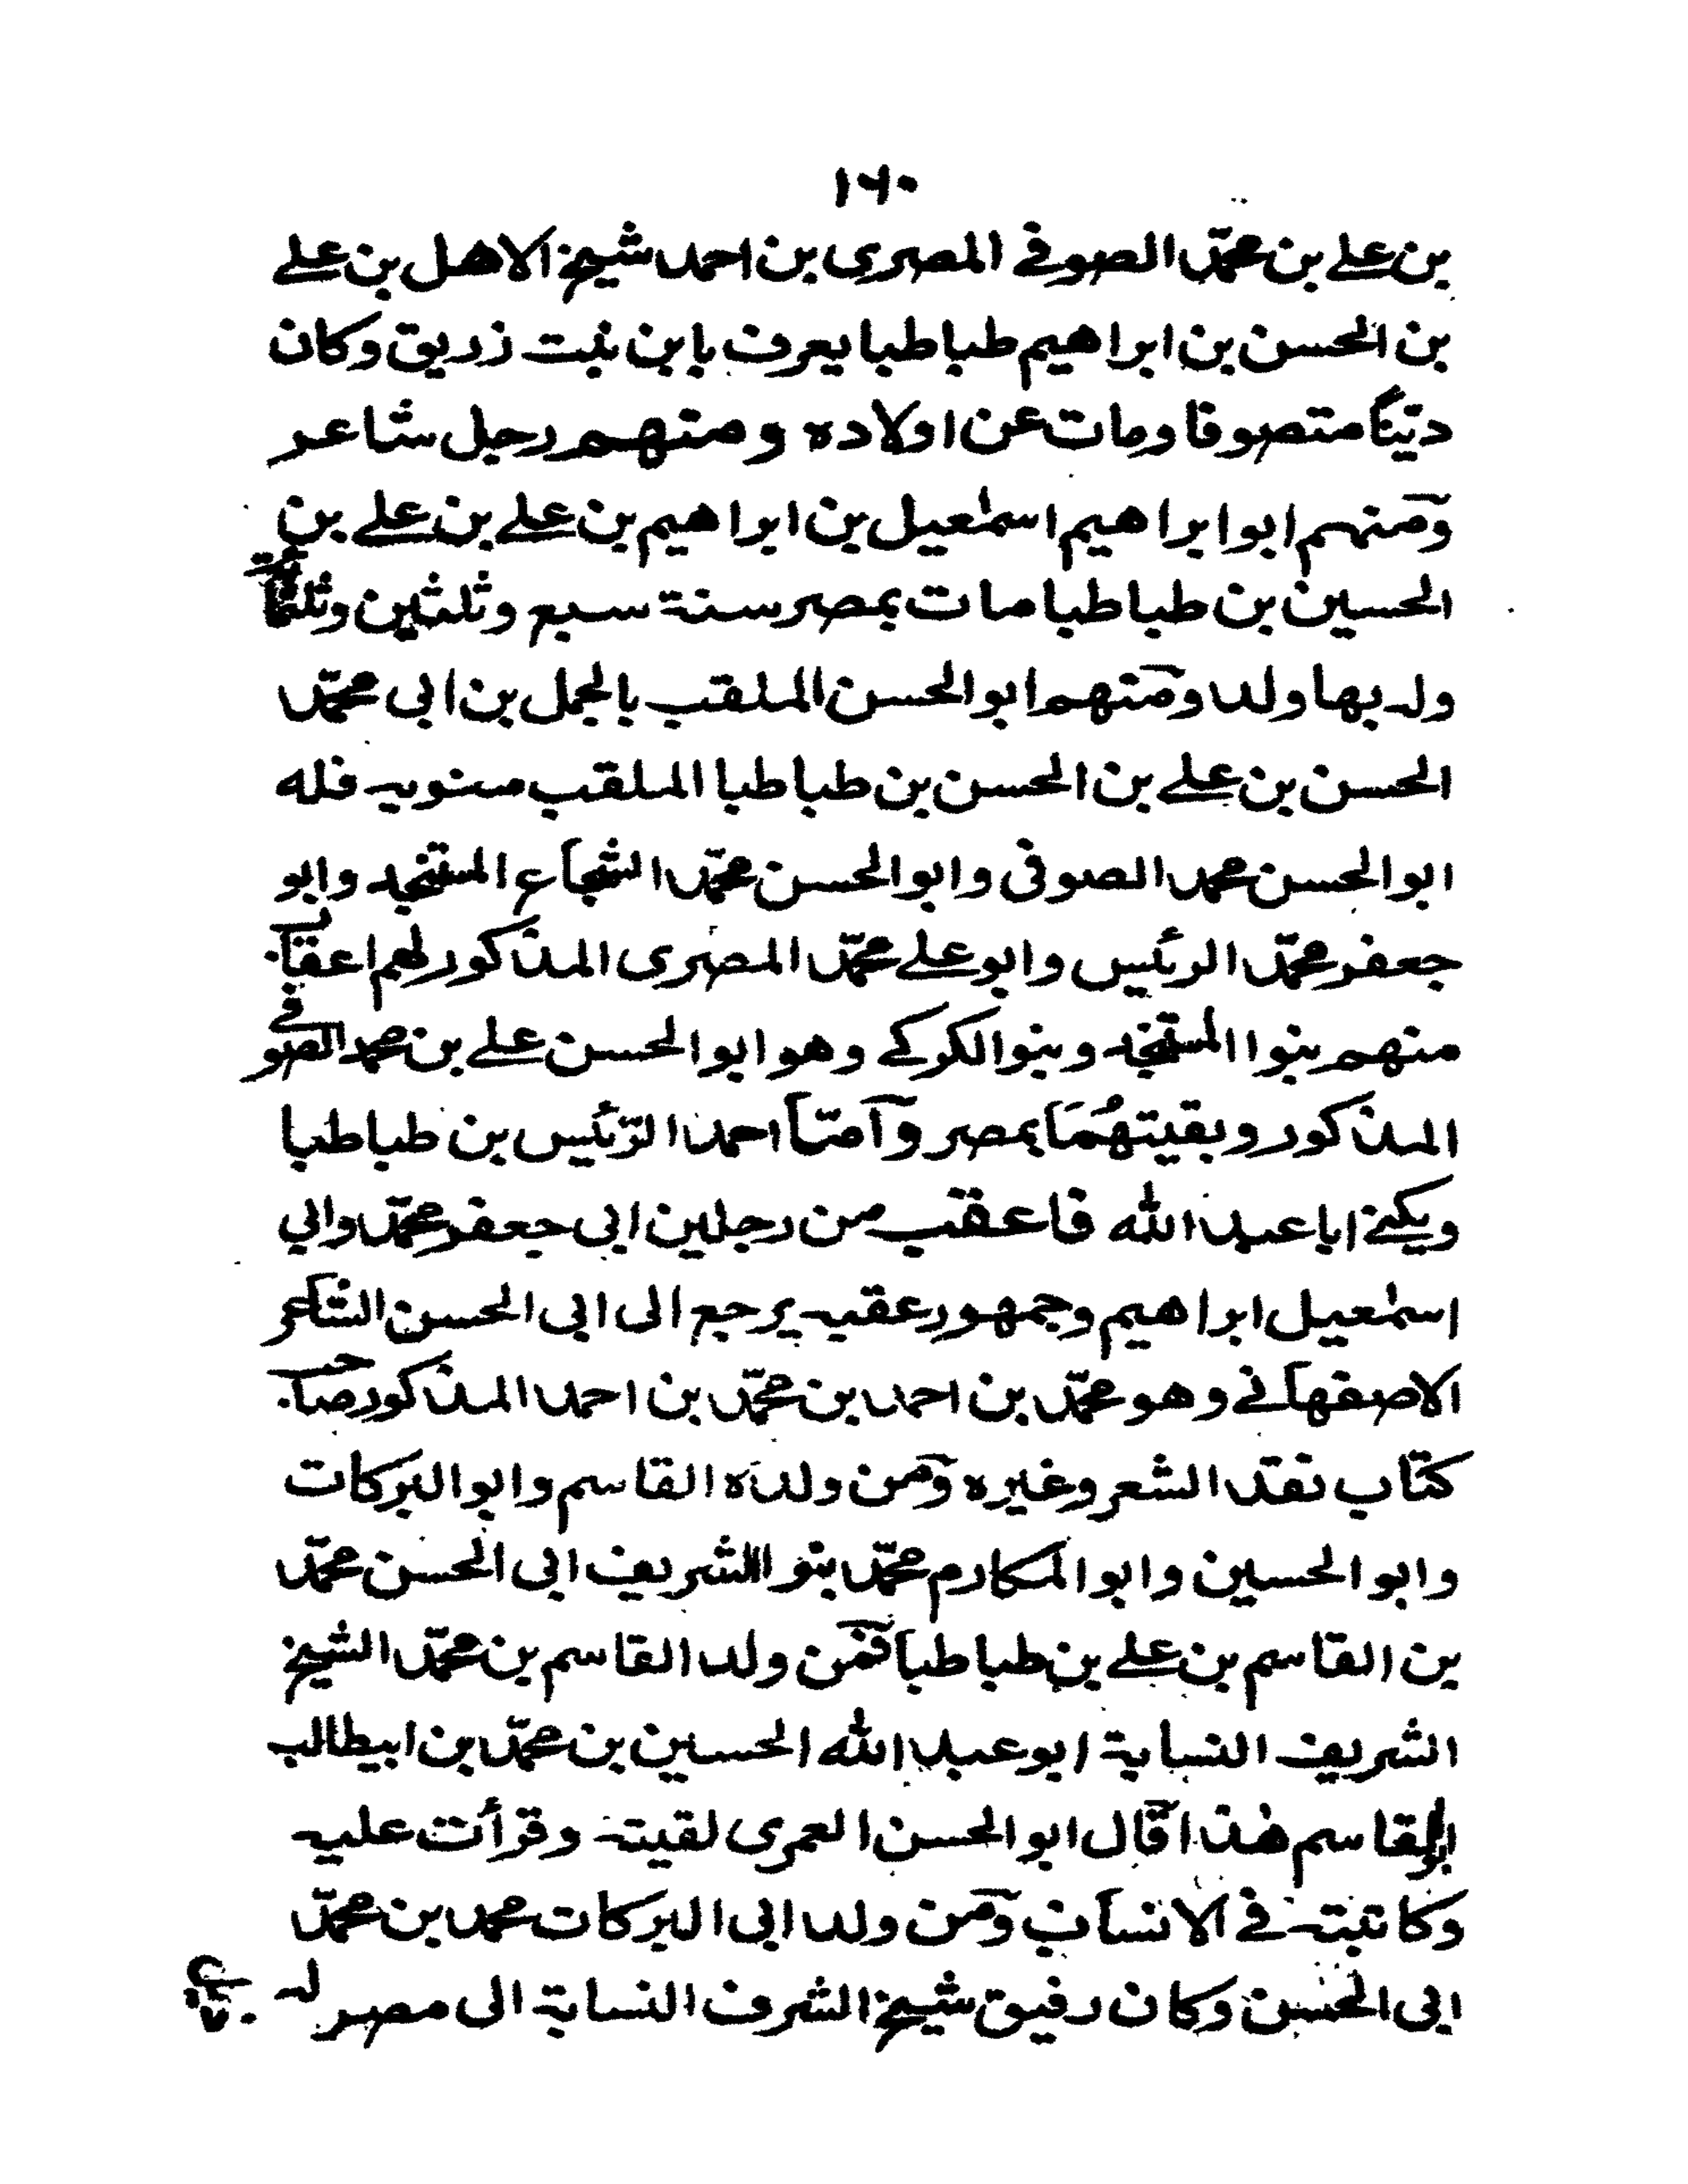 ١٦٠
بن علے بن محمّد الصوفے المصرى بن احمد شيخ الاهل بن علے
بن الحسن بن ابراهيم طباطبا يعرف بابن بنت زريق وكان
ديّنًا متصوفا ومات عن اولاده ومنهم رجل شاعر
ومنهم ابو ابراهيم اسمٰعيل بن ابراهيم بن علے بن علے بن
الحسين بن طباطبا مات بمصر سنة سبع وثلثين وثلثمائة
ولد بها ولد ومنهم ابو الحسن الملقب بالجمل بن ابى محمّد
الحسن بن علے بن الحسن بن طباطبا الملقب منويه فله
ابو الحسن محمد الصوفى وابو الحسن محمّد الشجاع المستنجد وابو
جعفر محمّد الرئيس وابو علے محمّد المصرى المذكور لهم اعقاب
منهم بنوا المستنجد وبنو الكركے وهو ابو الحسن علے بن محمد الصوفے
المذكور وبقيتهُمَا بمصر وآمّا احمد الرّئيس بن طباطبا
ويكنے ابا عبد الله فاعقب من رجلين ابى جعفر محمّد وابي
اسمٰعيل ابراهيم وجمهور عقبه يرجع الى ابى الحسن الشاعر
الاصفهانے وهو محمّد بن احمد بن محمّد بن احمد المذكور صاحب
كتاب نقد الشعر وغيره ومن ولده القاسم وابو البركات
وابو الحسين وابو المكارم محمّد بنو الشريف ابى الحسن محمّد
بن القاسم بن علے بن طباطبا فمن ولد القاسم بن محمّد الشيخ
الشريف النسابة ابو عبد الله الحسين بن محمّد بن ابيطالب
القاسم هٰذا قال ابو الحسن العمرى لقيته وقرأت عليه
وكاتبته فے الانساب ومن ولد ابى البركات محمد بن محمّد
ابى الحسن وكان رفيق شيخ الشرف النسابة الى مصر له